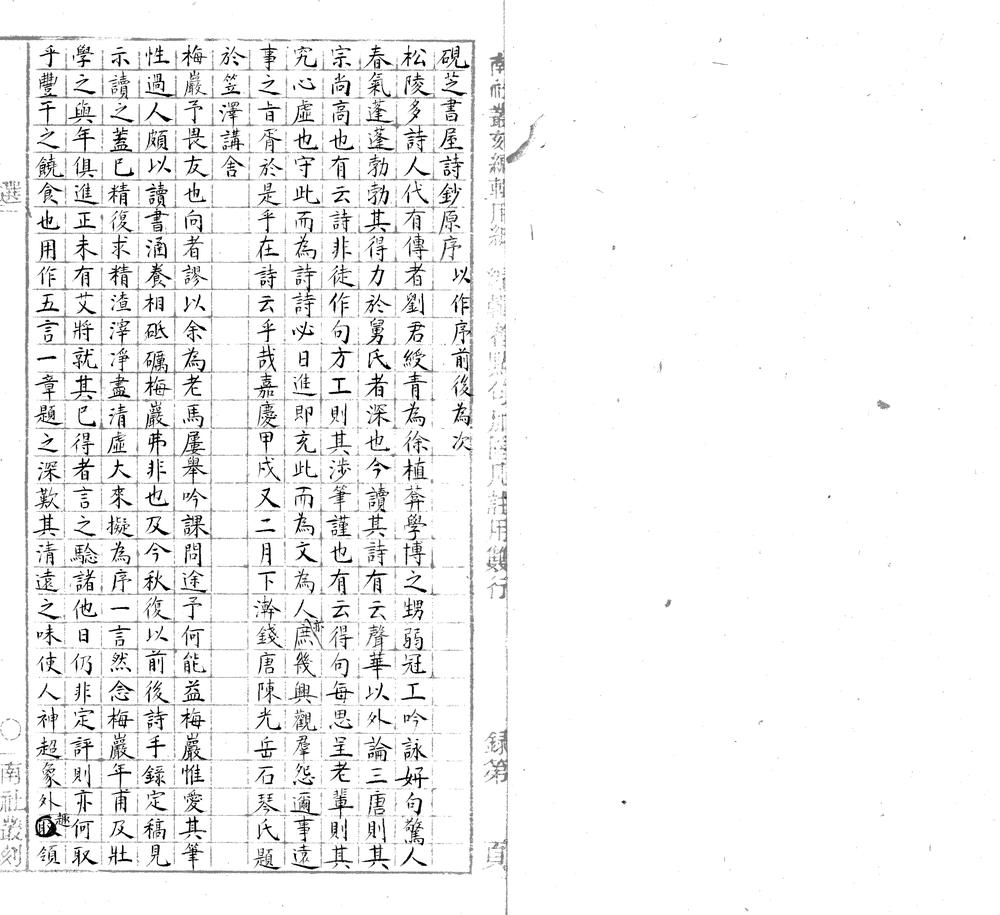 南社叢刻編輯用紙
錄第 頁
硯芝書屋詩鈔原序 以作序前後為次
松陵多詩人代有傳者劉君綬青為徐植葊學博之甥弱冠工吟詠妍句驚人
春氣蓬蓬勃勃其得力於舅氏者深也今讀其詩有云聲華以外論三唐則其
宗尚高也有云詩非徒作句方工則其涉筆謹也有云得句每思呈老輩則其
究心虛也守此而為詩詩必日進即充此而為文為人亦庶幾興觀羣怨邇事遠
事之旨胥於是乎在詩云乎哉嘉慶甲戌又二月下澣錢唐陳光岳石琴氏題
於笠澤講舍
梅巖予畏友也向者謬以余為老馬屢舉吟課問途予何能益梅巖惟愛其筆
性過人頗以讀書涵養相砥礪梅巖弗非也及今秋復以前後詩手錄定稿見
示讀之蓋已精復求精渣滓凈盡清虛大來擬為序一言然念梅巖年甫及壯
學之與年俱進正未有艾將就其已得者言之騐諸他日仍非定評則亦何取
乎豐干之饒食也用作五言一章題之深歎其清遠之味使人神超象外趣領
選
南社叢刻